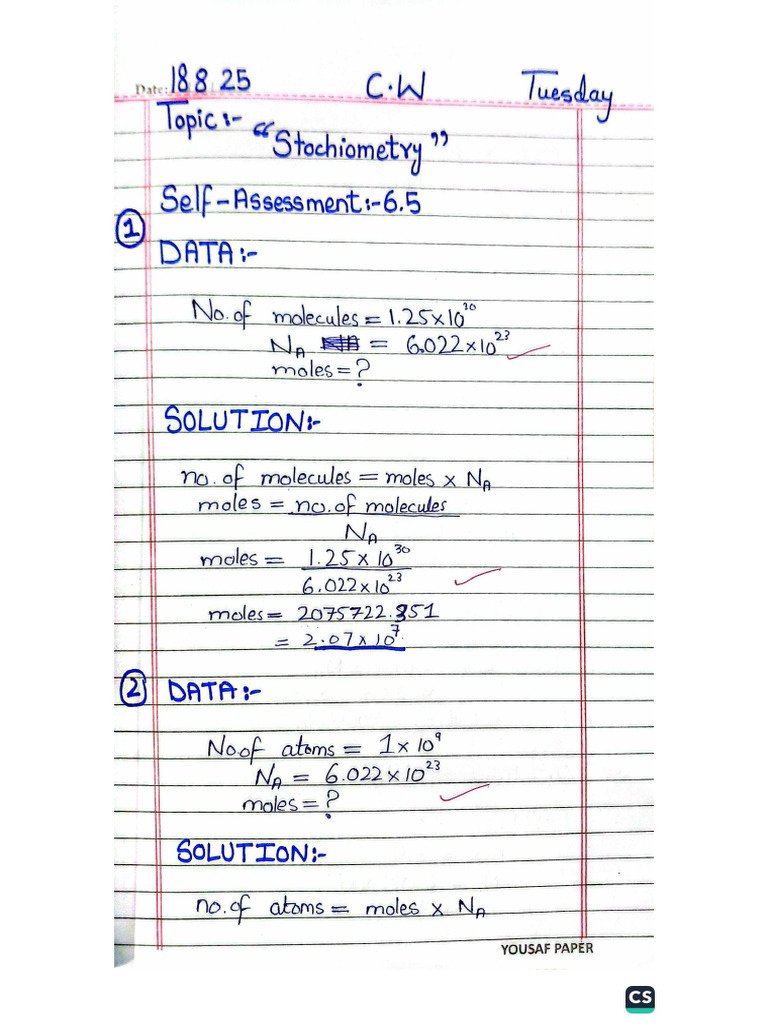 Date: 18 8 25 C.W Tuesday
Topic:- "Stochiometry"
Self-Assessment:-6.5
1 DATA:-
No. of molecules = 1.25×10³⁰
N_A = 6.022×10²³
moles = ?
SOLUTION:-
no. of molecules = moles × N_A
moles = no. of molecules
N_A
moles = 1.25×10³⁰
6.022×10²³
moles = 2075722.351
= 2.07×10⁷
2 DATA:-
No. of atoms = 1×10⁹
N_A = 6.022×10²³
moles = ?
SOLUTION:-
no. of atoms = moles × N_A
YOUSAF PAPER
CS